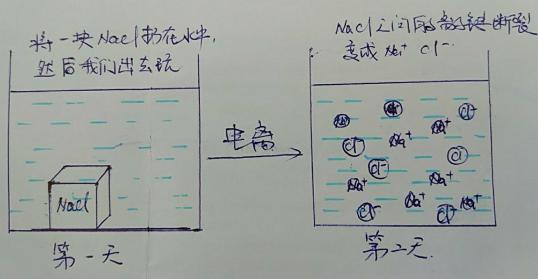 将一块Nacl扔在水中,
然后我们出去玩
Nacl
第一天
电离
Nacl之间的离子键断裂
变成Na⁺ Cl⁻
Cl⁻
Na⁺
Cl⁻
Na⁺
Cl
Cl⁻
Na⁺
Na⁺
Na⁺
Cl⁻
Cl⁻
Na⁺
第二天